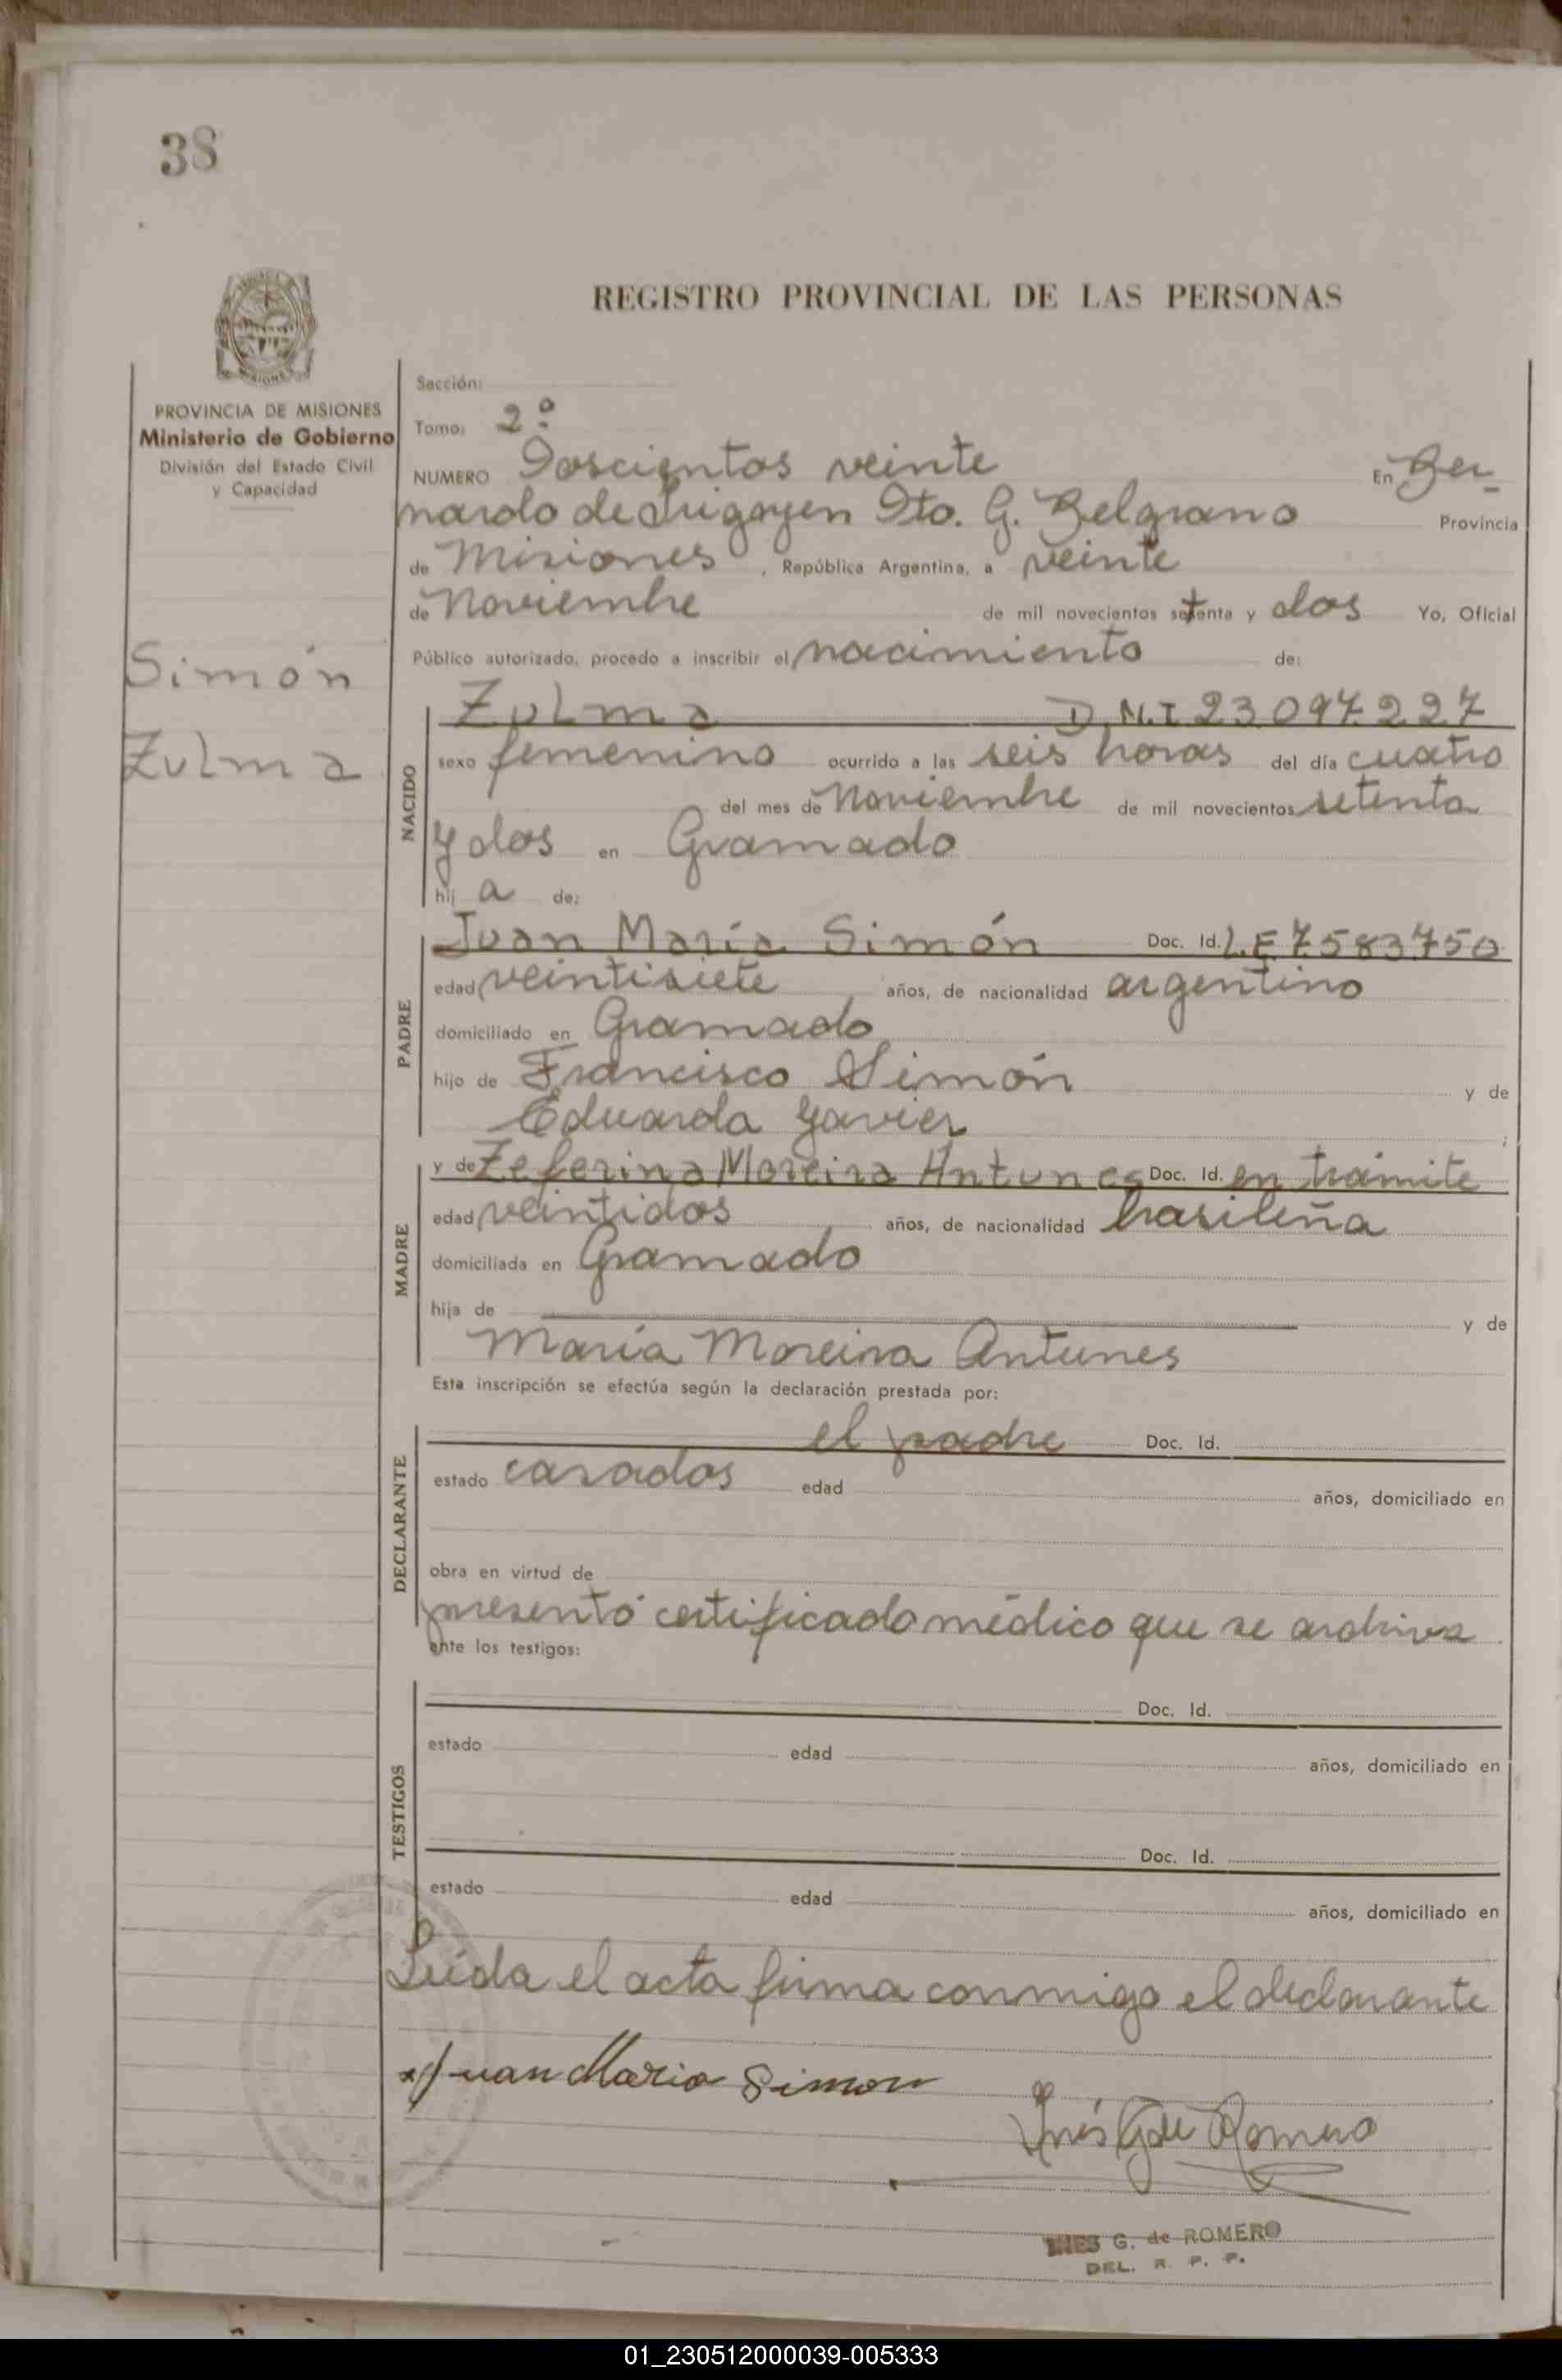 38
REGISTRO PROVINCIAL DE LAS PERSONAS
PROVINCIA DE MISIONES
Ministerio de Gobierno
División del Estado Civil
y Capacidad
Simón
Zulma
Sección:
Tomo: 2º
NUMERO Doscientos veinte En Ber_
nardo de Irigoyen Dto. G. Belgrano Provincia
de Misiones, República Argentina, a veinte
de Noviembre de mil novecientos setenta y dos Yo, Oficial
Público autorizado, procedo a inscribir el nacimiento de:
NACIDO
Zulma D.N.I 23.097.227
sexo femenino ocurrido a las seis horas del día cuatro
del mes de Noviembre de mil novecientos setenta
y dos en Gramado
hij a de:
PADRE
Juan María Simón Doc. Id. L.E 7.583.750
edad veintisiete años, de nacionalidad argentino
domiciliado en Gramado
hijo de Francisco Simón y de
Eduarda Yavier ;
MADRE
y de Zeferina Moreira Antunes Doc. Id. en trámite
edad veintidos años, de nacionalidad brasileña
domiciliada en Gramado
hija de y de
María Moreira Antunes
Esta inscripción se efectúa según la declaración prestada por:
DECLARANTE
el padre Doc. Id.
estado casados edad años, domiciliado en
obra en virtud de
presentó certificado médico que se archiva
ante los testigos:
TESTIGOS
Doc. Id.
estado edad años, domiciliado en
Doc. Id.
estado edad años, domiciliado en
Leída el acta firma conmigo el declarante
x Juan Maria Simon
Inés G de Romero
INES G. de ROMERO
DEL. R. P. P.
01_230512000039-005333